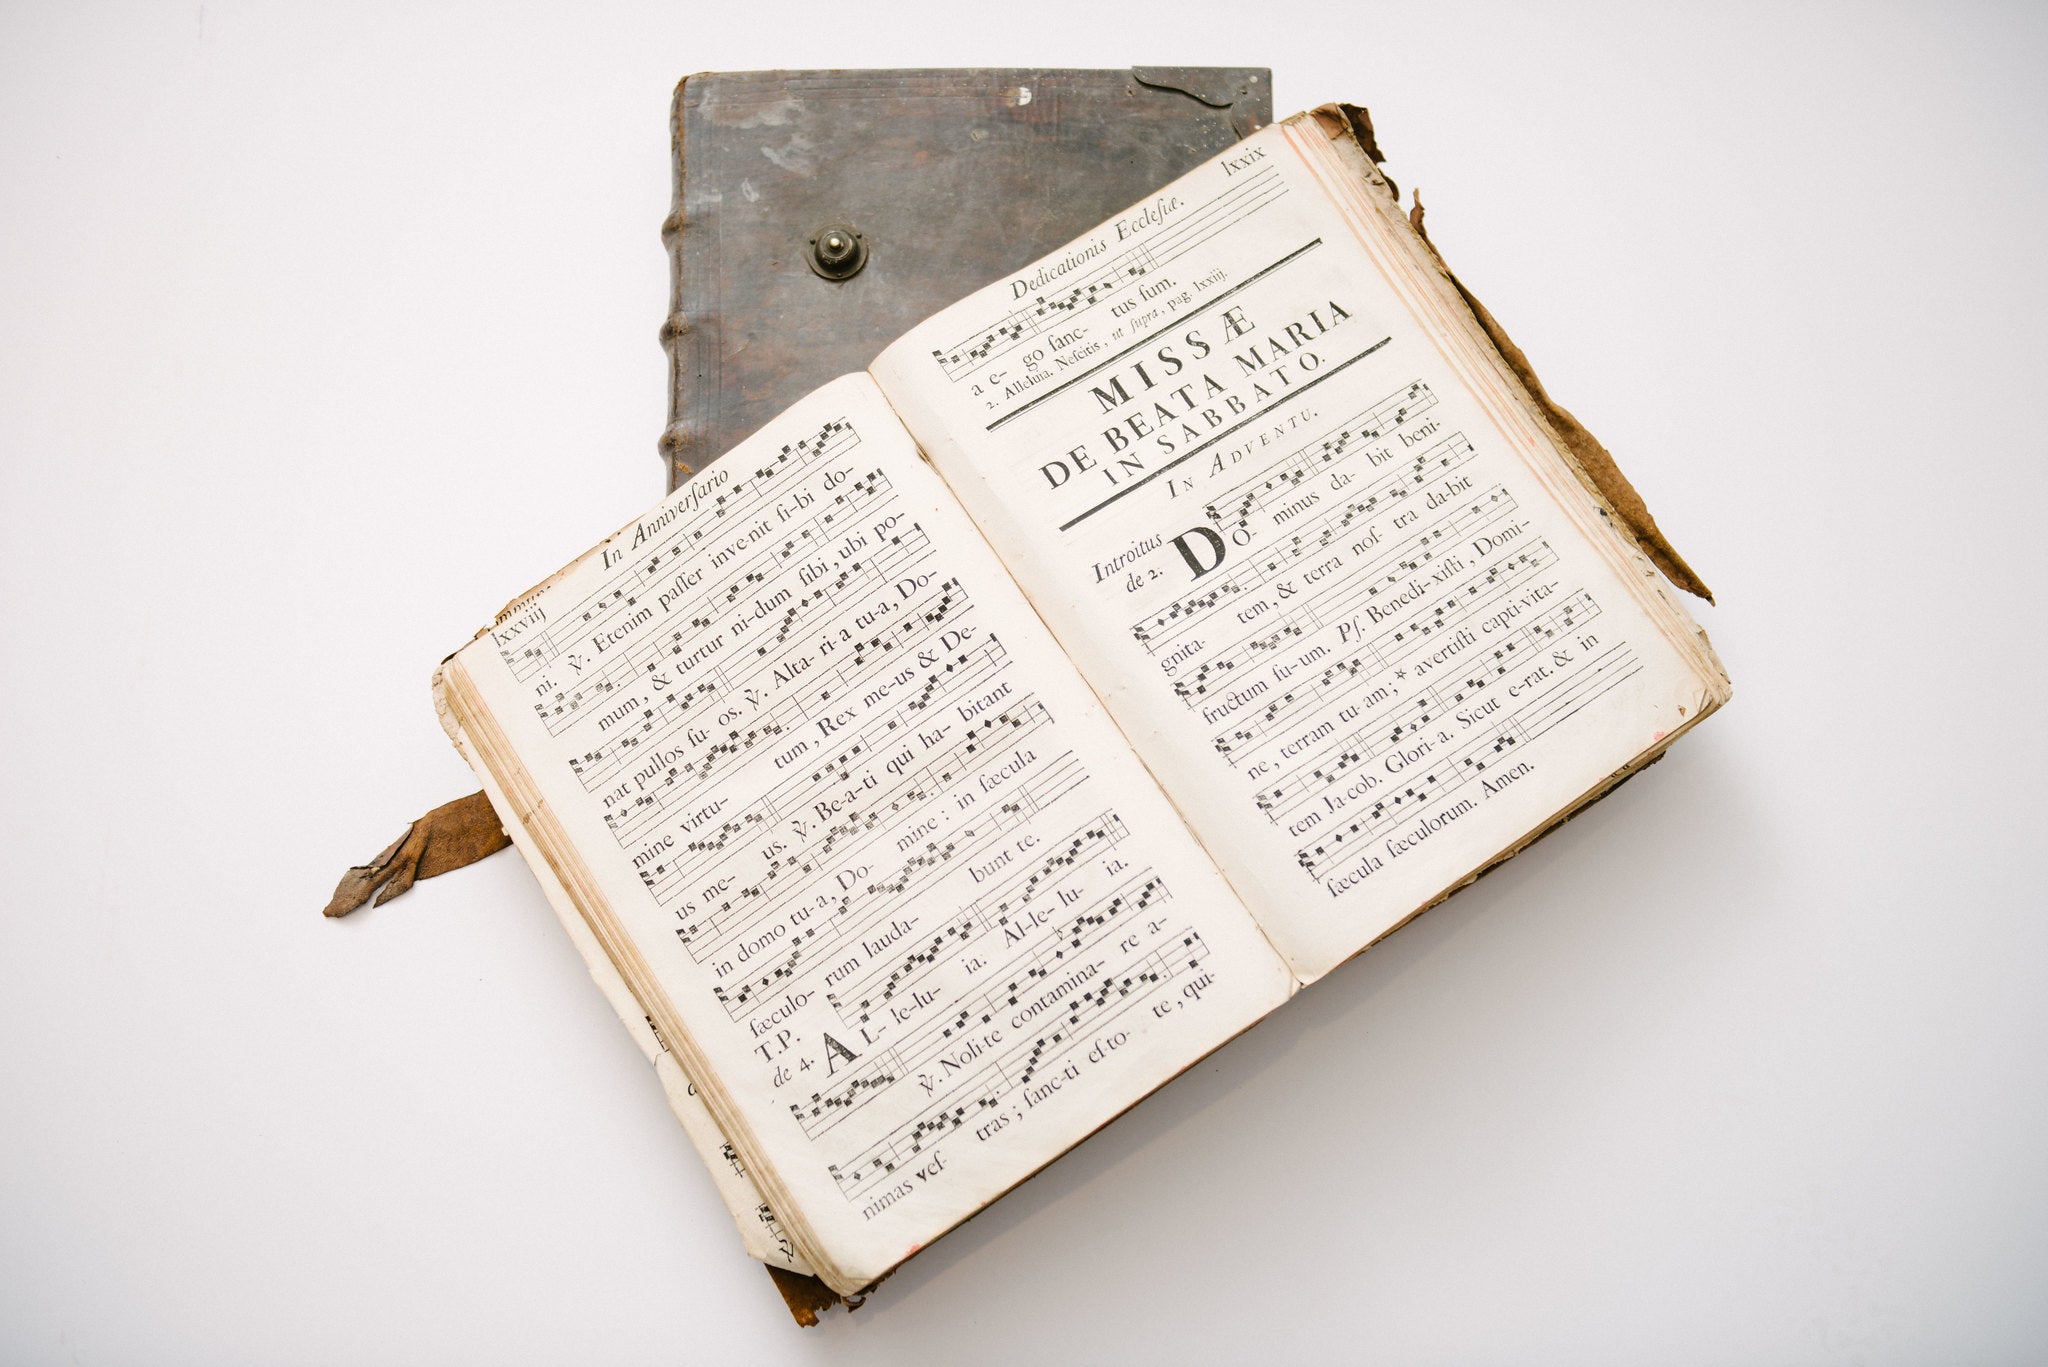 lxxviij In Anniversario
ni. ℣. Etenim paſſer inve-nit ſi-bi do-
mum, & turtur ni-dum ſibi, ubi po-
nat pullos ſu- os. ℣. Alta- ri-a tu-a, Do-
mine virtu- tum, Rex me-us & De-
us me- us. ℣. Be-a-ti qui ha- bitant
in domo tu-a, Do- mine: in ſæcula
ſæculo- rum lauda- bunt te.
T.P.
de 4. AL- le-lu- ia. Al-le- lu- ia.
℣. Noli-te contamina- re a-
nimas veſ- tras; ſanc-ti eſ-to- te, qui-
Dedicationis Eccleſiæ. lxxix
a e- go ſanc- tus ſum.
2. Alleluia. Neſcitis, ut ſupra, pag. lxxiij.
MISSÆ
DE BEATA MARIA
IN SABBATO.
IN ADVENTU.
Introitus
de 2. DO- minus da- bit beni-
gnita- tem, & terra noſ- tra da-bit
fructum ſu-um. Pſ. Benedi-xiſti, Domi-
ne, terram tu-am; * avertiſti capti-vita-
tem Ja-cob. Glori-a. Sicut e-rat. & in
ſæcula ſæculorum. Amen.